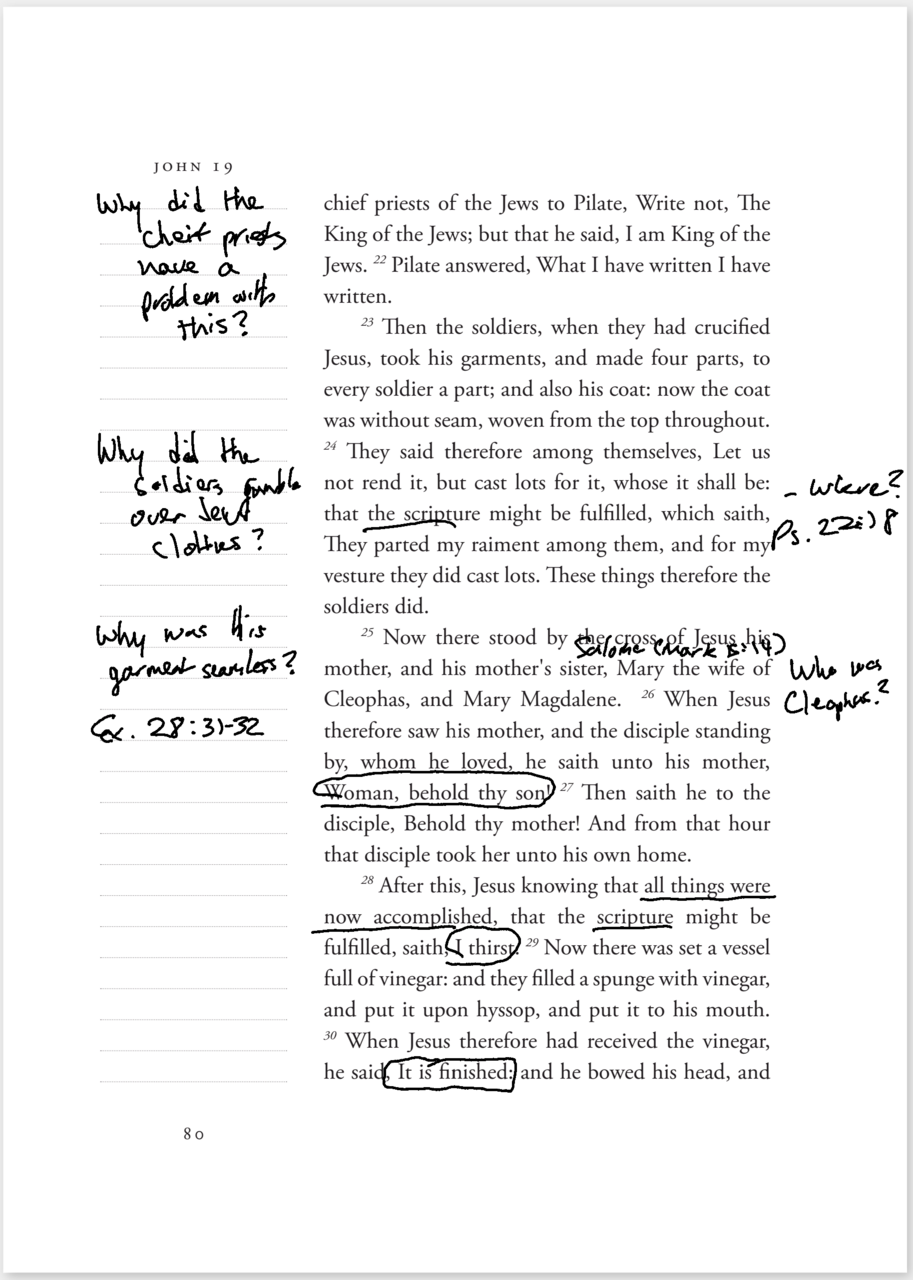 JOHN 19
Why did the
cheif priests
have a
problem with
this?
Why did the
soldiers gamble
over Jesus'
clothes?
Why was His
garment seamless?
Ex. 28:31-32
chief priests of the Jews to Pilate, Write not, The
King of the Jews; but that he said, I am King of the
Jews. 22 Pilate answered, What I have written I have
written.
23 Then the soldiers, when they had crucified
Jesus, took his garments, and made four parts, to
every soldier a part; and also his coat: now the coat
was without seam, woven from the top throughout.
24 They said therefore among themselves, Let us
not rend it, but cast lots for it, whose it shall be:
that the scripture might be fulfilled, which saith,
They parted my raiment among them, and for my
vesture they did cast lots. These things therefore the
soldiers did.
- where?
Ps. 22:18
25 Now there stood by the cross of Jesus his
Salome (Mark 15:14)
mother, and his mother's sister, Mary the wife of
Cleophas, and Mary Magdalene. 26 When Jesus
therefore saw his mother, and the disciple standing
by, whom he loved, he saith unto his mother,
Woman, behold thy son! 27 Then saith he to the
disciple, Behold thy mother! And from that hour
that disciple took her unto his own home.
Who was
Cleophas?
28 After this, Jesus knowing that all things were
now accomplished, that the scripture might be
fulfilled, saith, I thirst. 29 Now there was set a vessel
full of vinegar: and they filled a spunge with vinegar,
and put it upon hyssop, and put it to his mouth.
30 When Jesus therefore had received the vinegar,
he said, It is finished: and he bowed his head, and
80